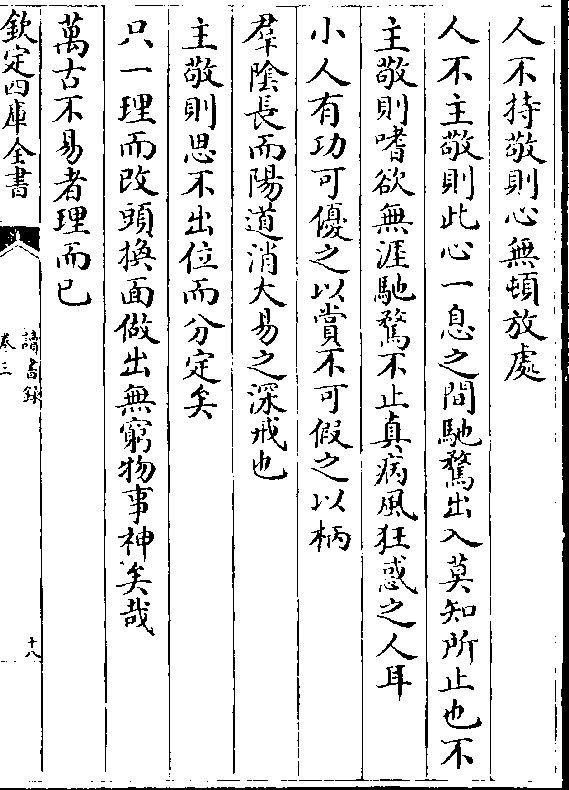 人不持敬則心無頓放處
人不主敬則此心一息之間馳騖出入莫知所止也不
主敬則嗜欲無涯馳騖不止真病風狂惑之人耳
小人有功可優之以賞不可假之以柄
羣陰長而陽道消大易之深戒也
主敬則思不出位而分定矣
只一理而改頭換面做出無窮物事神矣哉
萬古不易者理而已
欽定四庫全書
讀書録
卷三
十八